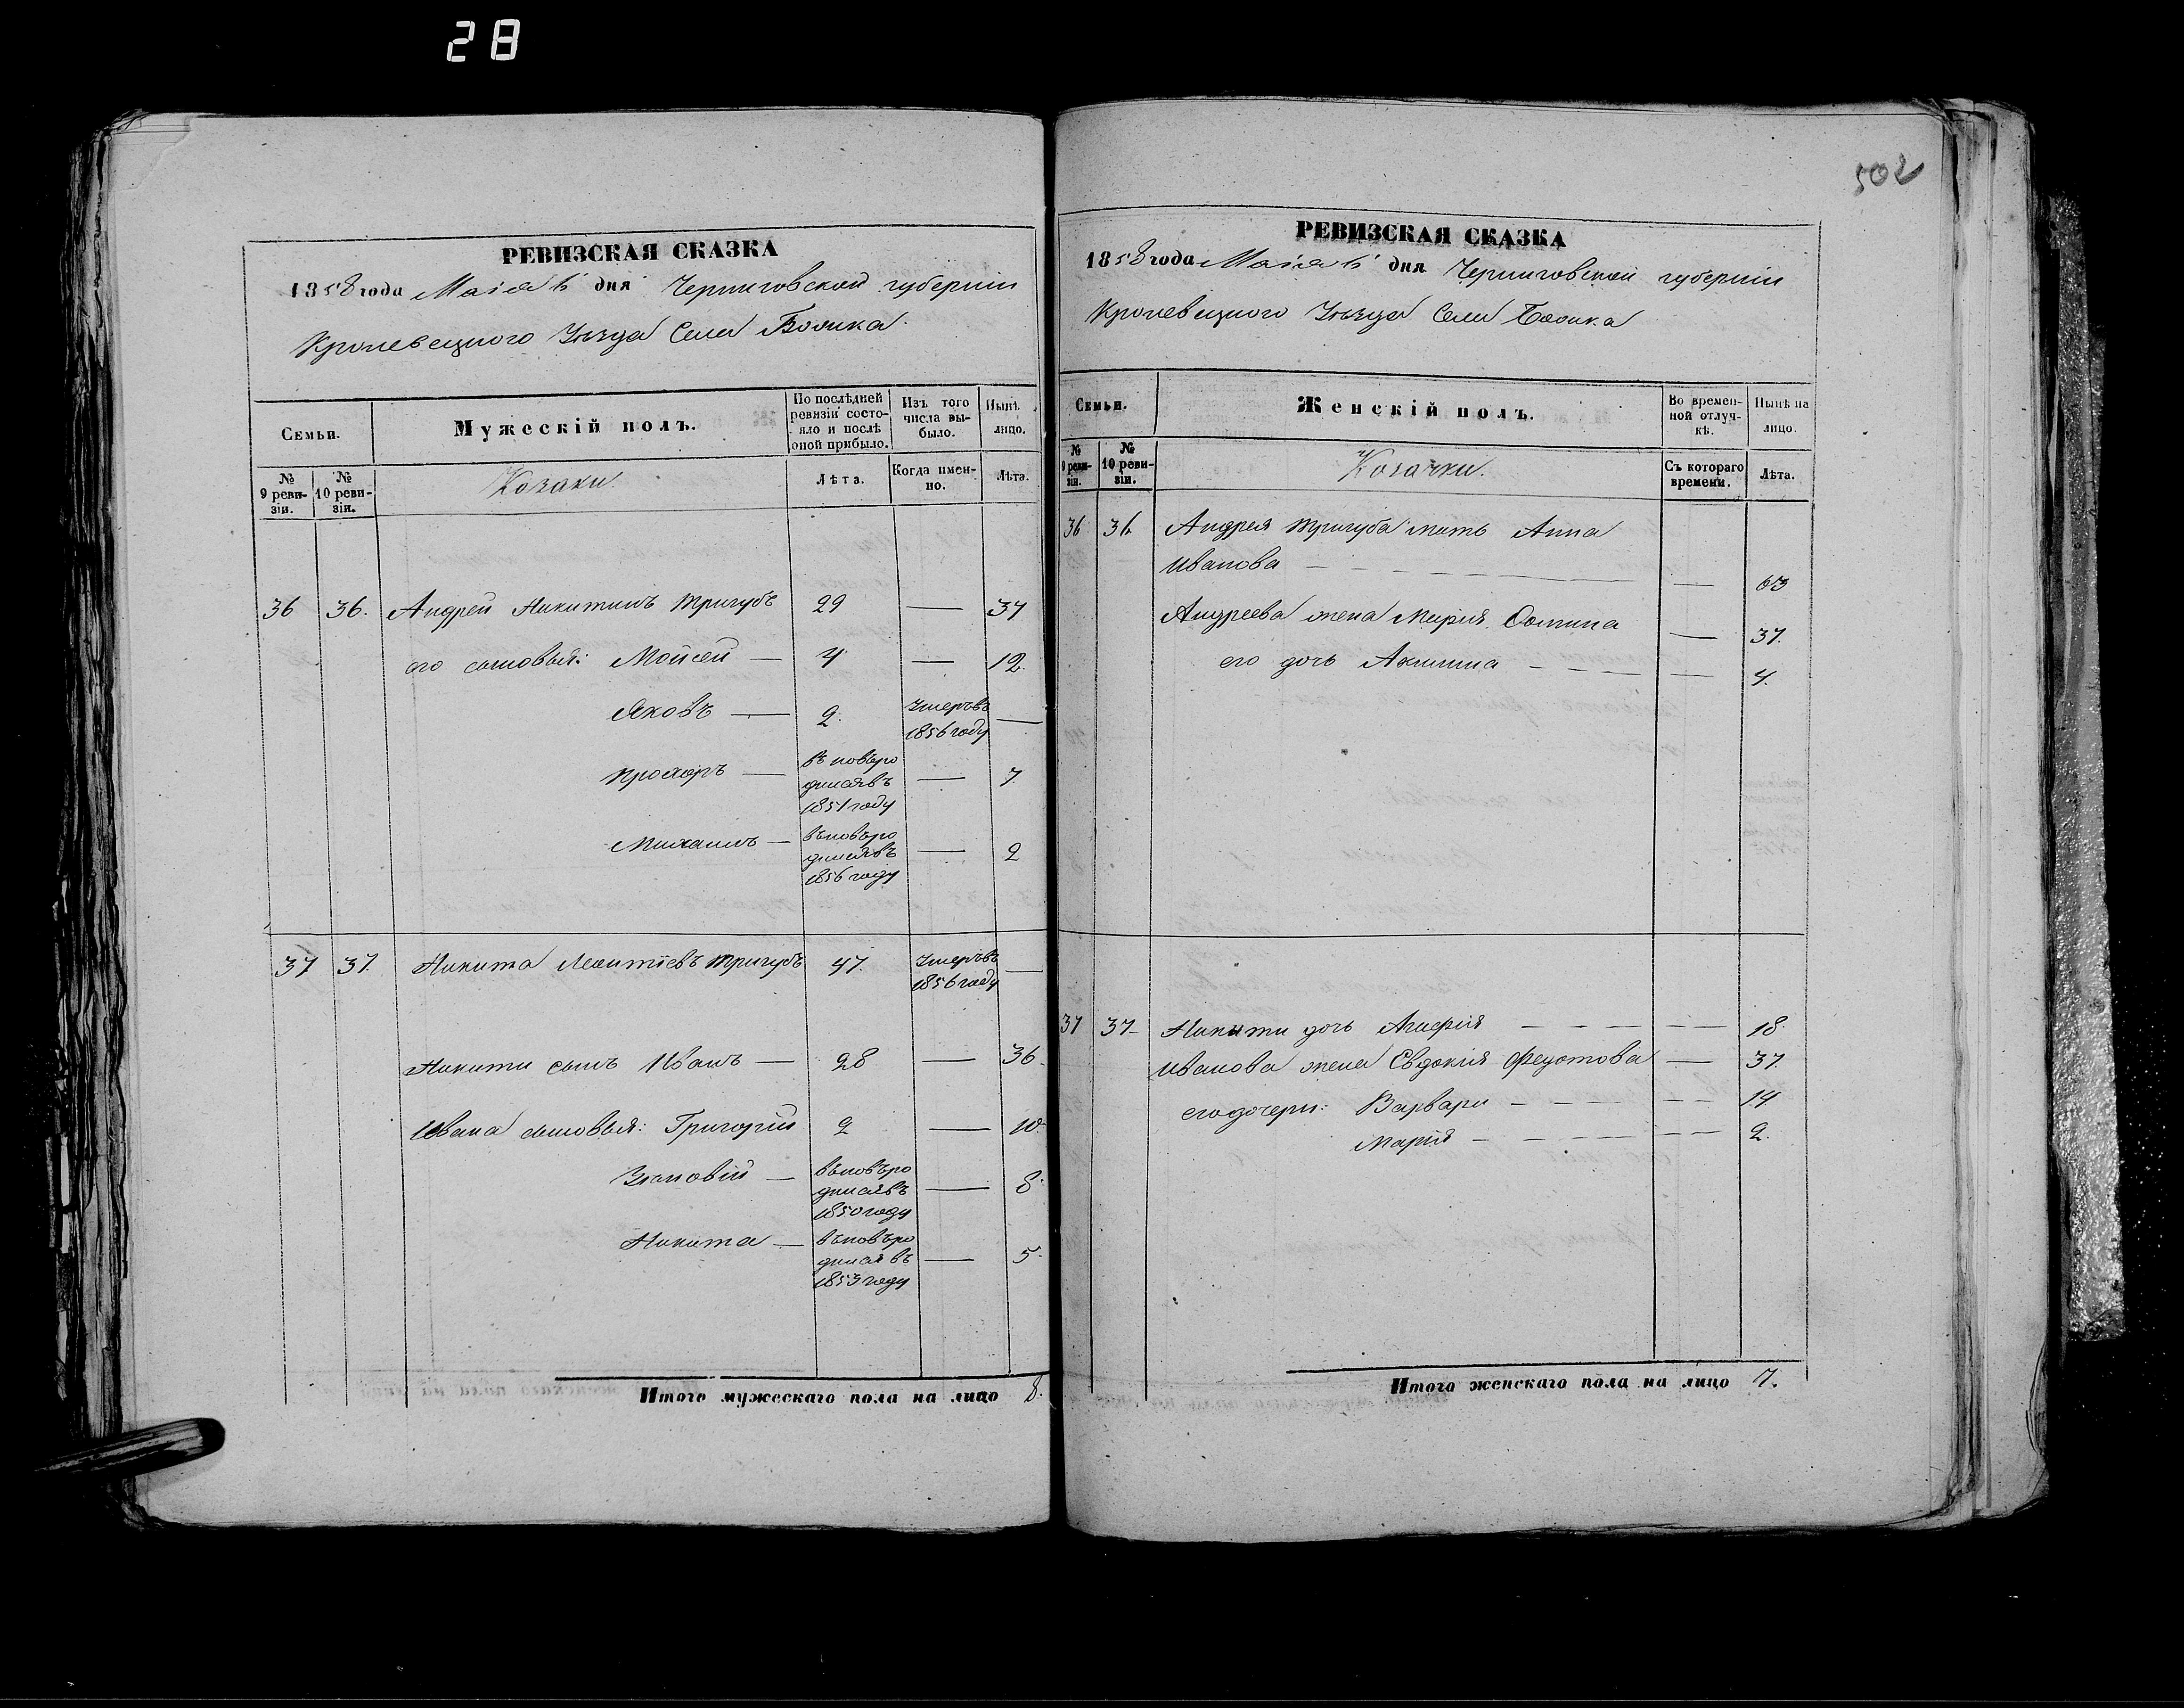 28
РЕВИЗСКАЯ СКАЗКА
1858 года Маія 6 дня Черниговской губерніи
Кролевецкого Уѣзда Села
Семьи.
Мужескій полъ.
По послѣдней ревизіи состояло и послѣ оной прибыло.
Изъ того числа выбыло.
Нынѣ лицо.
№ 9 ревизіи.
№ 10 ревизіи.
Козаки.
Лѣта.
Когда именно.
Лѣта.
36 36. Андрей Никитинъ Тригубъ 29 — 37
его сыновья: Мойсей — 4 — 12.
Яковъ — 2. Умеръ въ —
1856 году
Прохоръ — вновь ро — 7
дился въ
1851 году
Михаилъ — вновь ро — 2
дился въ
1856 году
37 37. Никита Леонтіевъ Тригубъ 47. Умеръ въ —
1856 году
Никиты сынъ Иванъ — 28 — 36.
Ивана сыновья: Григорій 2 — 10.
Зѣновій — вновь ро — 8.
дился въ
1850 году
Никита — вновь ро — 5.
дился въ
1853 году
Итого мужескаго пола на лицо 8.
502
РЕВИЗСКАЯ СКАЗКА
1858 года Маія 6 дня Черниговской губерніи
Кролевецкого Уѣзда Села
Семьи.
Женскій полъ.
Во временной отлучкѣ.
Нынѣ на лицо.
№ 9 ревизіи.
№ 10 ревизіи.
Козачки.
Съ котораго времени.
Лѣта.
36 36. Андрея Тригуба мать Анна
Иванова — — 63
Андреева жена Марія — 37.
его дочь Акилина — — 4.
37 37. Никиты дочь — — 18.
Иванова жена Евдокія Федотова — 37.
его дочери: Варвара — — 14
Марія — — 2.
Итого женскаго пола на лицо 7.